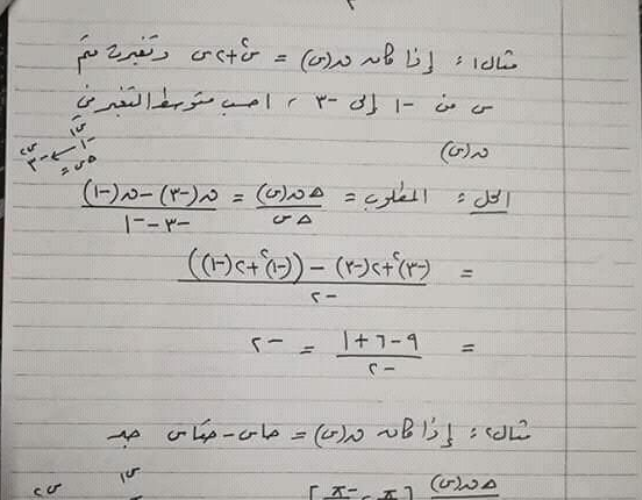 ٢
مثال ١: إذا كانه ق(س) = س٢ + ٢س وتغيرت قيم
س من -١ إلى -٣ ، احسب متوسط التغير في
س١
-١ ← -٣ س٢
ق(س)
Δس =
الحل: المطلوب = Δق(س)/Δس = (ق(-٣) - ق(-١))/(-٣ - -١)
= ((-٣)٢ + ٢(-٣) - ((-١)٢ + ٢(-١)))/-٢
= (٩ - ٦ + ١)/-٢ = -٢
مثال ٢: إذا كانه ق(س) = جاس - جتاس جد
Δق(س)
س١
س٢